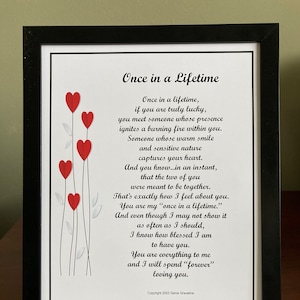 Once in a Lifetime
Once in a lifetime,
if you are truly lucky,
you meet someone whose presence
ignites a burning fire within you.
Someone whose warm smile
and sensitive nature
captures your heart.
And you know...in an instant,
that the two of you
were meant to be together.
That's exactly how I feel about you.
You are my "once in a lifetime,"
And even though I may not show it
as often as I should,
I know how blessed I am
to have you.
You are everything to me
and I will spend "forever"
loving you.
Copyright 2002 Genie Graveline